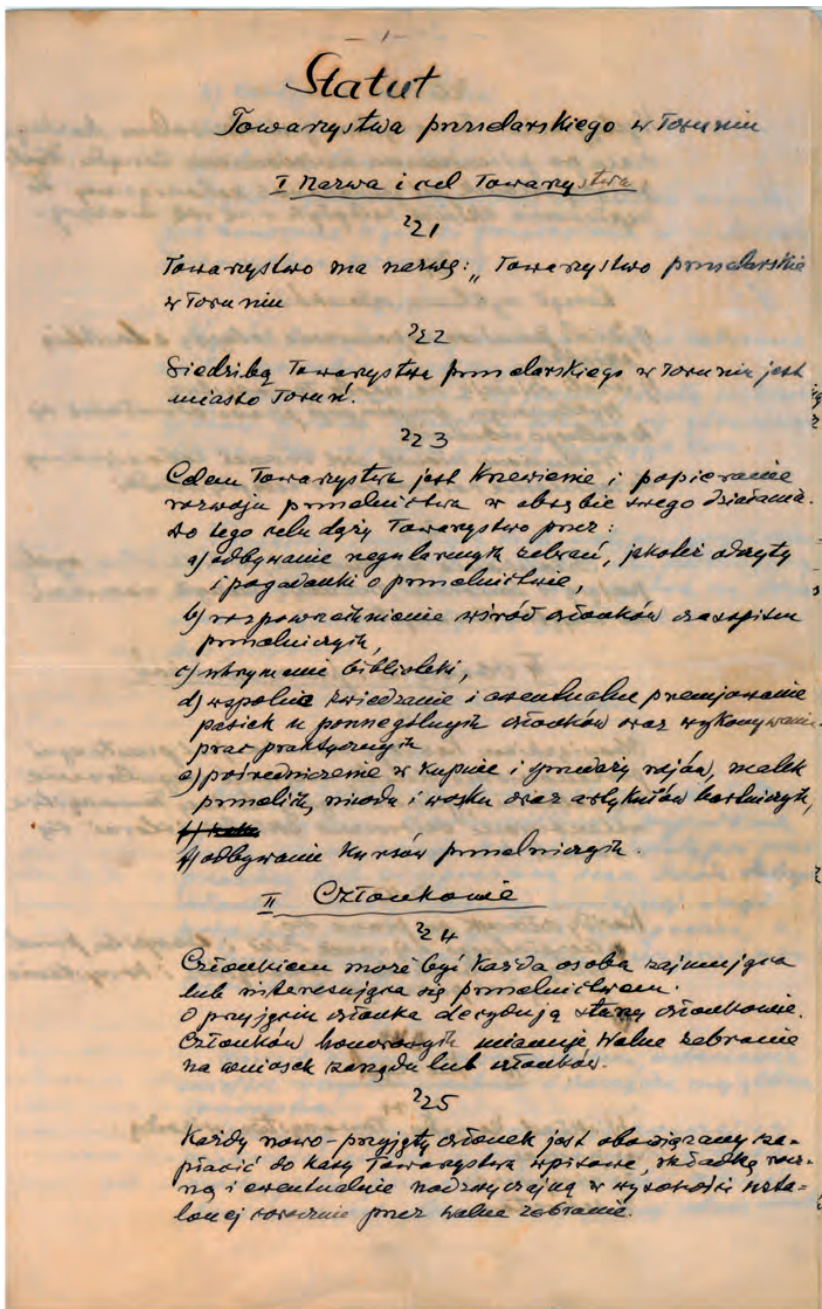 - 1 -
Statut
Towarzystwa pszczelarskiego w Toruniu
I Nazwa i cel Towarzystwa
§ 1
Towarzystwo ma nazwę: „Towarzystwo pszczelarskie
w Toruniu
§ 2
Siedzibą Towarzystwa pszczelarskiego w Toruniu jest
miasto Toruń.
§ 3
Celem Towarzystwa jest krzewienie i popieranie
rozwoju pszczelnictwa w obrębie swego działania.
Do tego celu dąży Towarzystwo przez:
a) odbywanie regularnych zebrań, jakoteż odczyty
i pogadanki o pszczelnictwie,
b) rozpowszechnienie wśród członków czasopism
pszczelniczych,
c) utrzymanie biblioteki,
d) wspólne zwiedzanie i ewentualne premjowanie
pasiek u poszczególnych członków oraz wykonywanie
prac praktycznych
e) pośredniczenie w kupnie i sprzedaży rojów, matek
pszczelich, miodu i wosku oraz artykułów bartniczych,
f) odbywanie kursów pszczelniczych.
II Członkowie
§ 4
Członkiem może być każda osoba zajmująca
lub interesująca się pszczelnictwem.
O przyjęciu członka decydują starzy członkowie.
Członków honorowych mianuje walne zebranie
na wniosek zarządu lub członków.
§ 5
Każdy nowo-przyjęty członek jest obowiązany za-
płacić do kasy Towarzystwa wpisowe, składkę rocz-
ną i ewentualnie nadzwyczajną w wysokości usta-
lonej corocznie przez walne zebranie.